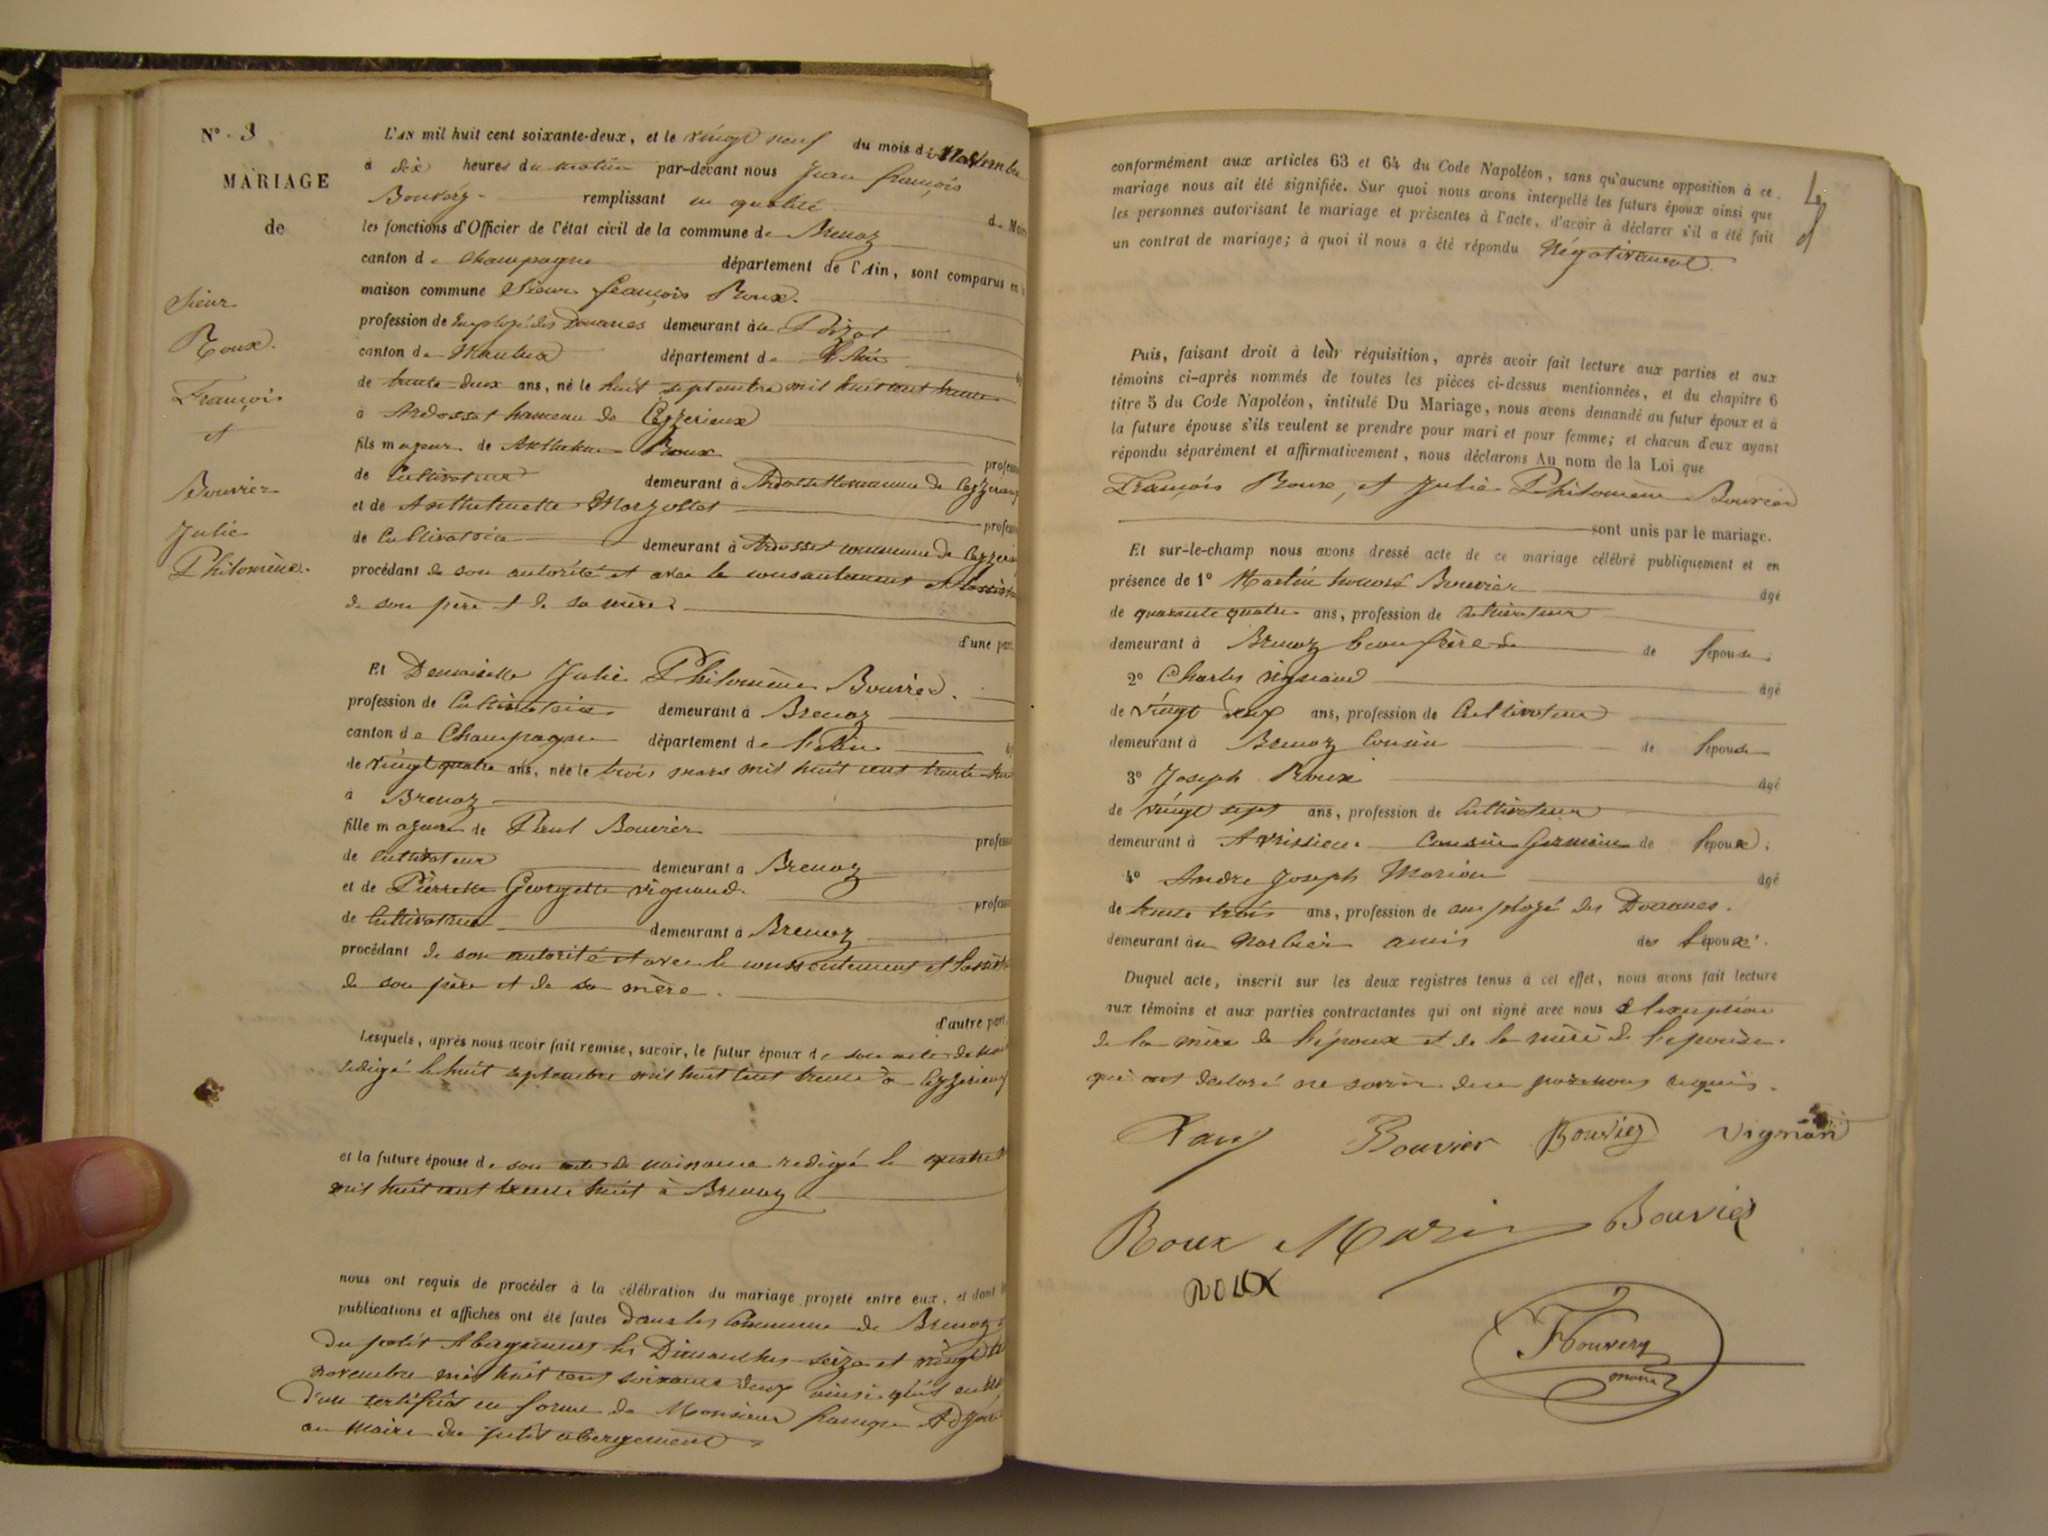 N° 3
MARIAGE
de
Sieur
Roux
François
et
Bouvier
Julie
Philomène.
L'AN mil huit cent soixante-deux, et le vingt neuf du mois de Novembre
à dix heures du matin par-devant nous Jean françois
Bouvery remplissant en qualité de Maire
les fonctions d'Officier de l'état civil de la commune de Brenaz
canton de Champagne département de l'Ain, sont comparus en la
maison commune Sieur françois Roux.
profession de Employé des Douanes demeurant au Poizat
canton de Nantua département de l'Ain
de trente deux ans, né le huit septembre mil huit cent trente
à Ardosset hameau de Ceyzerieux
fils majeur de Anthelme Roux profession
de Cultivateur demeurant à Ardosset commune de Ceyzerieux
et de Anthelmette Marjollet profession
de Cultivatrice demeurant à Ardosset commune de Ceyzerieux
procédant de son autorité et avec le consentement et l'assistance
de son père et de sa mère
d'une part.
Et Demoiselle Julie Philomène Bouvier.
profession de Cultivatrice demeurant à Brenaz
canton de Champagne département de l'Ain
de vingt quatre ans, née le trois mars mil huit cent trente-huit
à Brenaz
fille majeure de Paul Bouvier profession
de Cultivateur demeurant à Brenaz
et de Pierrette Georgette vignaud. profession
de Cultivatrice demeurant à Brenaz
procédant de son autorité et avec le consentement et l'assistance
de son père et de sa mère.
d'autre part.
Lesquels, après nous avoir fait remise, savoir, le futur époux de son acte de
redigé le huit septembre mil huit cent trente à Ceyzerieux
et la future épouse de son acte de naissance redigé le quatre
mil huit cent trente huit à Brenaz
nous ont requis de procéder à la célébration du mariage projeté entre eux, et dont les
publications et affiches ont été faites dans les Commune de Brenaz et
du petit Abergement les Dimanches seize et vingt
novembre mil huit cent soixante deux ainsi qu'il
d'un certificat en forme de Monsieur
au maire du petit abergement
conformément aux articles 63 et 64 du Code Napoléon, sans qu'aucune opposition à ce
mariage nous ait été signifiée. Sur quoi nous avons interpellé les futurs époux ainsi que
les personnes autorisant le mariage et présentes à l'acte, d'avoir à déclarer s'il a été fait
un contrat de mariage; à quoi il nous a été répondu Négativement.
Puis, faisant droit à leur réquisition, après avoir fait lecture aux parties et aux
témoins ci-après nommés de toutes les pièces ci-dessus mentionnées, et du chapitre 6
titre 5 du Code Napoléon, intitulé Du Mariage, nous avons demandé au futur époux et à
la future épouse s'ils veulent se prendre pour mari et pour femme; et chacun d'eux ayant
répondu séparément et affirmativement, nous déclarons Au nom de la Loi que
François Roux, et Julie Philomène Bouvier
sont unis par le mariage.
Et sur-le-champ nous avons dressé acte de ce mariage célébré publiquement et en
présence de 1° Martin honoré Bouvier âgé
de quarante quatre ans, profession de Cultivateur
demeurant à Brenaz beau frère de de l'épouse;
2° Charles vignaud âgé
de vingt deux ans, profession de Cultivateur
demeurant à Brenaz Cousin de l'épouse
3° Joseph Roux âgé
de vingt sept ans, profession de Cultivateur
demeurant à Avrissieu Cousin Germain de l'époux;
4° Andre Joseph Marion âgé
de trente trois ans, profession de employé des Douanes.
demeurant au amis des époux.
Duquel acte, inscrit sur les deux registres tenus à cet effet, nous avons fait lecture
aux témoins et aux parties contractantes qui ont signé avec nous à l'exception
de la mère de l'époux et de la mère de l'épouse
qui ont declaré ne savoir de ce par nous requis.
Roux Bouvier Bouvier vignau
Roux Marion Bouvier
ROUX
Bouvery
maire